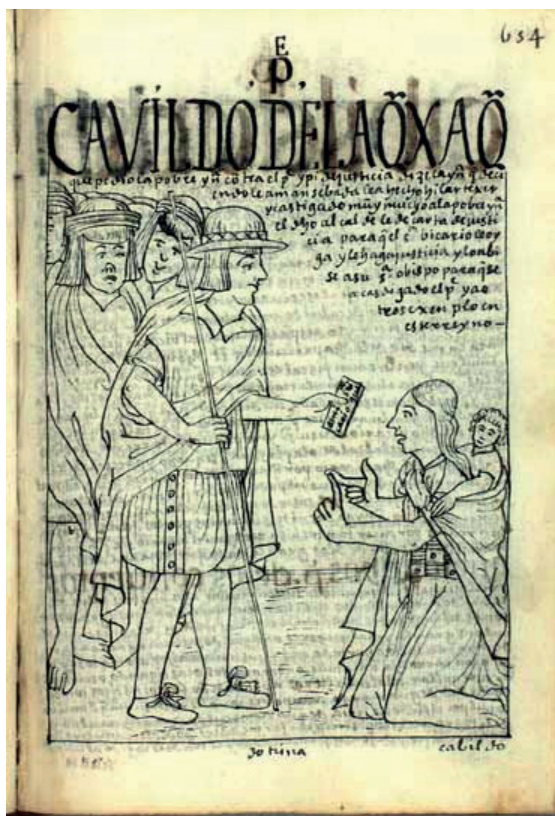 654
E
P̃
CAVILDO DE LAQ̃XAQ̃
que pidiolapobre yñ cõtrael pᵉ ypi dejusticia dizelayñ q̃ deci
endole amansebada leahecho hilar texer
ycastigado muy mucho alapobre yñ
el dho alcaldelede carta dejusti
cia paraq̃ el sᵒʳ bicario leoy
ga ylehagajusticia yloabi
se asu sᵒʳ obispo paraq̃ se
a castigado el pᵉ yao
tros exenplo en
este rreyno—
dotrina
cabildo